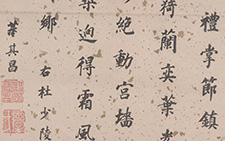 禮掌節鎮
猗蘭奕葉
絕動宮墻
梨迥得霜風
鄉
右杜少陵
董其昌